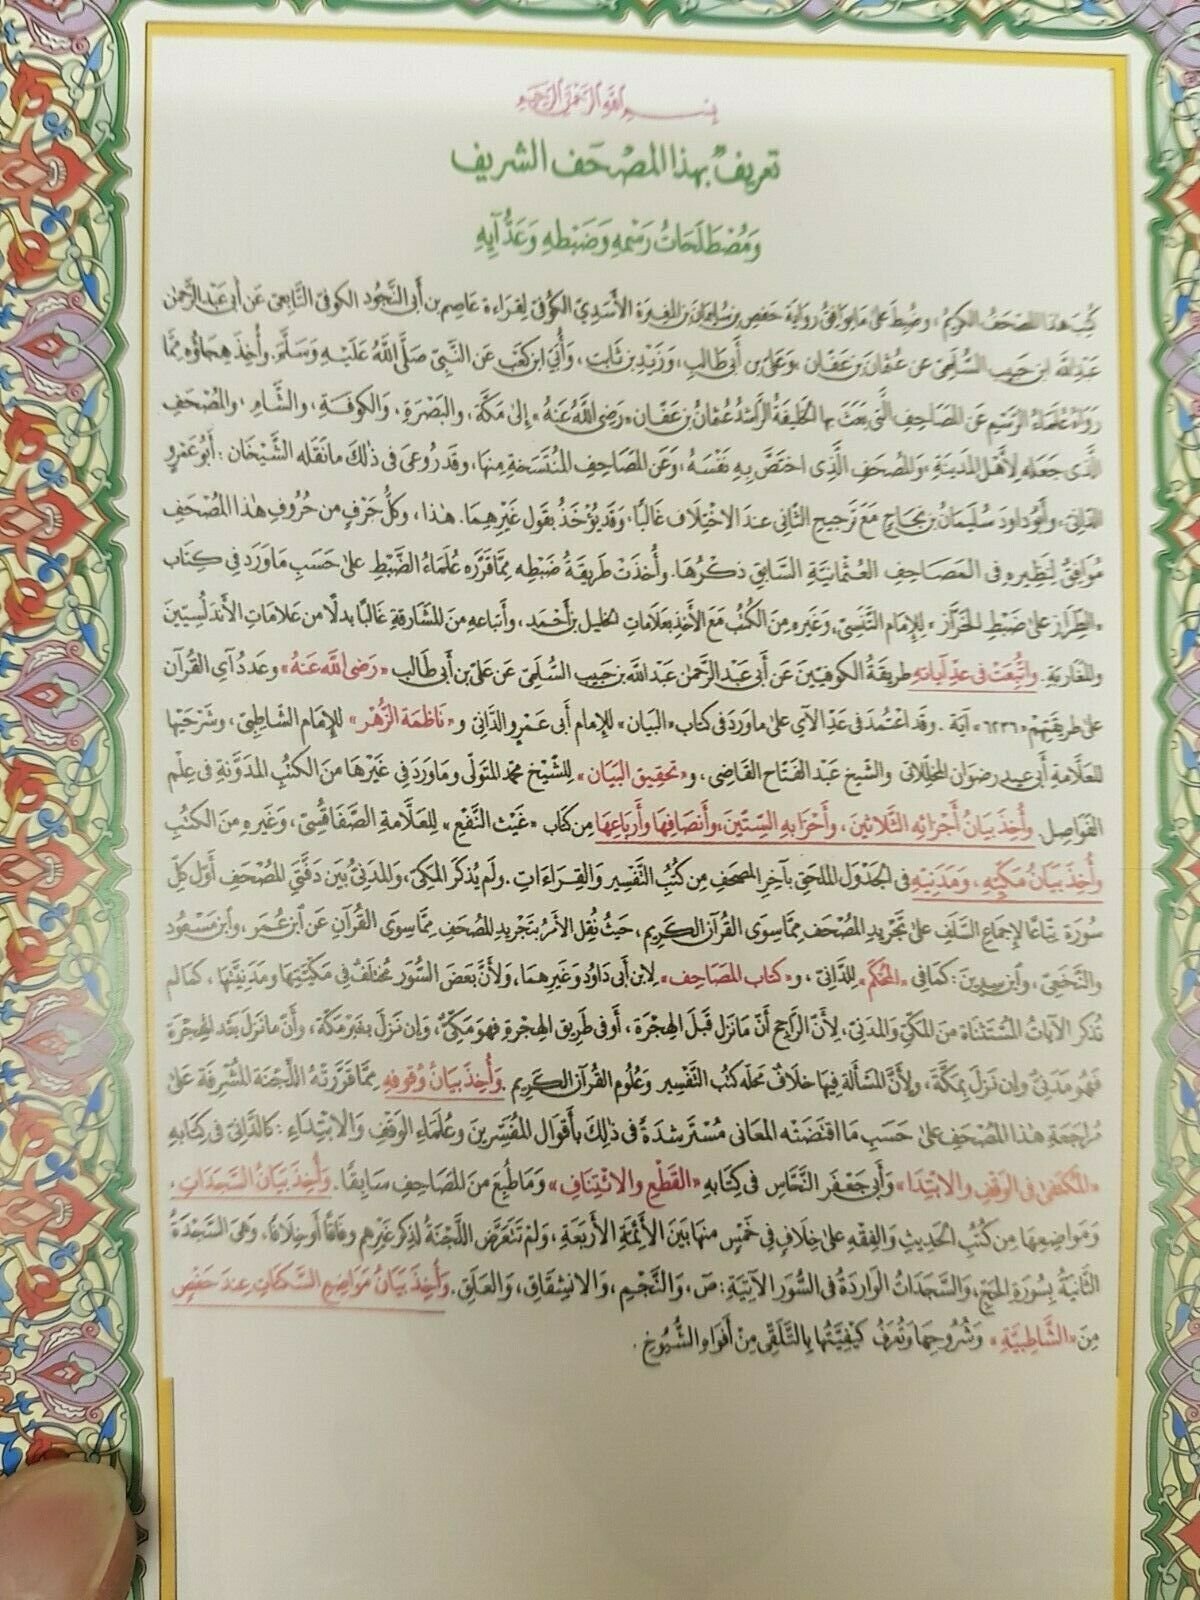 بِسْمِ اللَّهِ الرَّحْمَٰنِ الرَّحِيمِ
تعريفٌ بهذا المصْحَف الشريف
وَمُصْطَلَحَاتُ رَسْمِهِ وَضَبْطِهِ وَعَدِّ آيِهِ
كُتِبَ هذا المصحَفُ الكريمُ، وضُبِطَ على ما يوافقُ روايةَ حَفصِ بن سُليمانَ بن المغيرَةِ الأَسَدِيّ الكوفيّ لِقراءة عاصم بن أَبي النَّجُود الكوفيّ التَّابعيّ عَن أبي عَبْد الرَّحمٰن
عَبْد اللَّه ابن حَبيب السُّلَميّ عن عُثمانَ بن عَفَّان، وَعَليّ بن أَبي طالب، وَزَيْد بن ثَابت، وَأُبيّ ابن كعْب عَن النَّبيّ صَلَّى اللَّهُ عَلَيْهِ وَسَلَّمَ. وَأُخِذَ هِجَاؤُه ممَّا
رَوَاهُ عُلَمَاءُ الرَّسم عَن المصَاحِف الَّتي بَعَثَ بها الخليفَةُ الرَّاشدُ عُثمانُ بن عَفَّان «رَضي اللَّه عَنهُ» إلى مَكَّةَ، والبَصْرَةِ، والكوفَةِ، والشَّامِ، والمُصْحَفِ
الَّذي جَعَلَه لِأَهْلِ المَدينَةِ، والمُصحَفِ الَّذِي اختَصَّ بِهِ نَفْسَهُ، وَعَن المَصَاحِفِ المُنتَسَخَةِ مِنهَا، وَقد رُوعِيَ في ذٰلكَ ما نَقَلَه الشَّيْخَان: أبُو عَمْرٍو
الدَّاني، وأبُو داود سُليمانُ بن نجاح مَعَ تَرجيح الثَّاني عندَ الاختِلاف غالبًا، وَقد يُؤْخَذُ بِقَولِ غَيْرِهِمَا. هٰذا، وكلُّ حَرْفٍ من حُرُوفِ هٰذا المُصْحَفِ
مُوَافِقٌ لِنظِيرِهِ في المَصَاحِفِ العُثْمَانِيَّةِ السَّابِقِ ذِكْرُهَا. وأُخذَتْ طَريقَةُ ضَبْطِه مِمَّا قَرَّرَه عُلَمَاءُ الضَّبْطِ على حَسَبِ مَا وَرَدَ في كِتَاب
«الطِّرَاز علىٰ ضَبْطِ الخرَّاز» للإمام التَّنَسيّ، وَغَيرِه مِنَ الكُتُب مَعَ الأخذ بعَلامَات الخليل بن أَحمَد، وأتباعِهِ مِنَ المشَارقةِ غالبًا بَدلًا من عَلامَات الأندَلُسيّينَ
والمغَاربَةِ. واتُّبعَت في عَدِّ آياتِهِ طَريقَةُ الكوفيّينَ عَن أَبي عَبْد الرَّحمٰن عَبْد اللَّه بن حَبيب السُّلَميّ عَن عَليّ بن أَبي طالب «رَضي اللَّه عَنهُ» وعَدَدُ آي القُرآن
على طَريقَتِهمْ «٦٢٣٦» آيَة. وقد اعْتُمدَ في عَدِّ الآي على ما وَرَدَ في كتَاب «البَيَان» للإمام أَبي عَمْرٍو الدَّاني و«نَاظمَة الزُّهْر» للإمام الشَّاطِبيّ، وشَرْحَيْها
للعَلَّامَة أَبي عيد رضوَان المخلّلاتي والشَّيخ عَبْد الفَتَّاح القَاضي، و«تحقيق البَيَان» للشَّيْخ محَمَّد المتَولّي وما وَرَدَ في غَيْرهَا مِنَ الكُتُب المدَوَّنَةِ في عِلْم
الفَوَاصِل. وأُخذ بَيَانُ أَجْزَائِه الثَّلاثينَ، وأَحْزَابِه السِّتّينَ، وَأَنصَافِهَا وأَربَاعِهَا مِن كتَاب «غَيْث النَّفْع» للعَلَّامَةِ الصَّفَاقُسيّ، وَغَيرِهِ مِنَ الكُتُب
وأُخِذَ بَيَانُ مَكّيِّه، وَمَدَنِيِّه في الجَدْوَل المُلحَق بآخِر المصحَفِ مِن كتُب التَّفْسِير والقِرَاءَات. ولَم يُذكَر المَكّيّ، والمَدَنيُّ بَينَ دَفَّتَي المُصْحَف أَوَّلَ كلِّ
سُورَة اتِّبَاعًا لإِجمَاع السَّلَف على تَجْرِيد المُصْحَف مِمَّا سِوَى القُرآن الكَرِيم، حَيثُ نُقِلَ الأَمْرُ بتَجرِيد المُصْحَفِ مِمَّا سِوَى القُرآن عَن ابنِ عُمَرَ، وابْنِ مَسْعُود
والنَّخَعِيّ، وابن سِيرِينَ: كمَا في «المُحْكَم» للدَّاني، و«كتاب المصَاحِف» لِابن أَبي دَاوُد وَغَيرِهِمَا، ولأَنَّ بَعضَ السُّوَر مُختَلَفٌ في مَكِّيَّتِهَا ومَدَنِيَّتِهَا، كمَا لم
تُذكر الآيَاتُ المُسْتَثْنَاة مِنَ المَكّيِّ والمدَنيّ، لِأَنَّ الرَّاجِحَ أَنَّ مَا نَزَل قَبلَ الهِجْرَة، أَو في طَرِيق الهِجْرةِ فَهوَ مَكّيٌّ، وَإن نَزَلَ بغَيرْ مَكّة، وأَنَّ مَا نزَل بَعْد الهِجْرَة
فَهُوَ مَدَنيٌّ وإن نَزَلَ بمَكَّة، ولأَنَّ المَسْأَلة فِيهَا خلَافٌ محَلّه كتُبُ التَّفْسِير وَعُلوم القُرآن الكَرِيم. وَأُخِذَ بَيَانُ وُقُوفِهِ مِمَّا قَرَّرَتْهُ اللَّجنَة المُشْرِفَة علىٰ
مُراجَعَةِ هٰذا المُصْحَفِ على حَسَبِ ما اقتَضَتْه المعَاني مُسْتَرشِدَةً في ذٰلِكَ بأَقْوَال المُفَسِّرِينَ وعُلَمَاءِ الوَقفِ والابْتِدَاءِ: كالدَّانيّ في كِتَابِهِ
«المُكتَفىٰ في الوَقْفِ والابْتِدَا» وأَبي جَعْفَر النَّحَّاس في كِتَابِهِ «القَطْعِ والائْتِنَافِ» وَمَا طُبِعَ مِنَ المصَاحِفِ سَابِقًا. وأُخِذَ بَيَانُ السَّجَدَاتِ،
وَمَوَاضِعِهَا مِن كتُبِ الحَدِيثِ والفِقْهِ علىٰ خِلَافٍ في خَمْسٍ منهَا بَيْنَ الأَئِمَّةِ الأَرْبَعَةِ، ولَمْ تَتَعَرَّض اللَّجْنَةُ لذِكْر غَيْرِهِم وِفَاقًا أَو خِلَافًا، وَهيَ السَّجْدَةُ
الثَّانِيَةُ بِسُورَةِ الحَجّ، والسَّجَدَاتُ الوَارِدَةُ في السُّوَر الآتِيَةِ: صٓ، والنَّجْمِ، والانشِقَاق، والعَلَق. وَأُخِذَ بَيَانُ مَوَاضِعِ السَّكتَاتِ عِندَ حَفْصٍ
مِنَ «الشَّاطِبيَّةِ» وَشُرُوحِهَا وَتُعرَفُ كَيفِيَّتُها بِالتَّلَقِّي مِنْ أَفْوَاهِ الشُّيُوخِ.